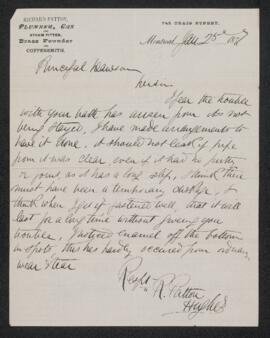 RICHARD PATTON,
PLUMBER, GAS
AND
STEAM FITTER,
Brass Founder
AND
COPPERSMITH.
745 CRAIG STREET,
Montreal, Jan 25th 187
Principal Dawson
Dr Sir
I fear the trouble
with your bath has arisen from its not
being . I have made arrangements to
have it done, it should not leak if pipe
from it was clear even if it had no putty
or joint, as it has a , I think there
must have been a temporary . I
think when I get it fastened well, that it will
last for a long time without giving you
trouble, I noticed enamel off the bottom
in spots, this has hardly occured from ordinary
wear & tear
Respt
R. Patton
Hughes